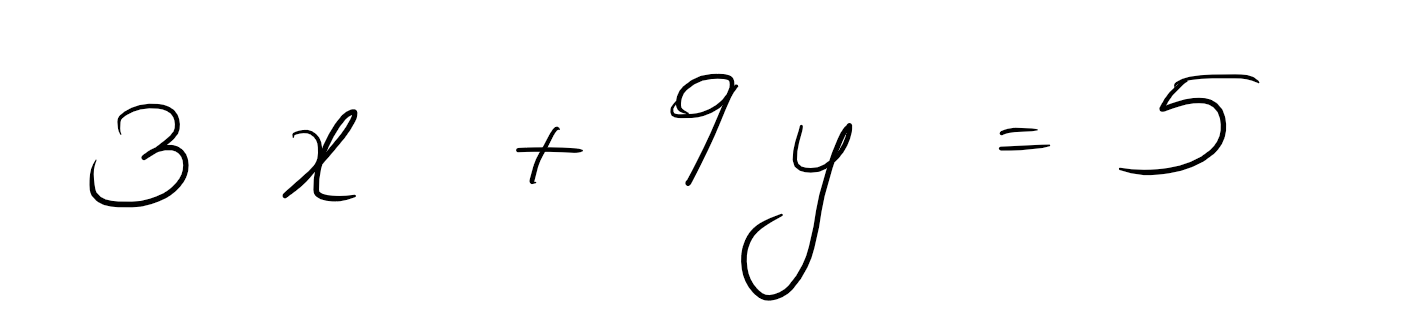 3 x + 9 y = 5